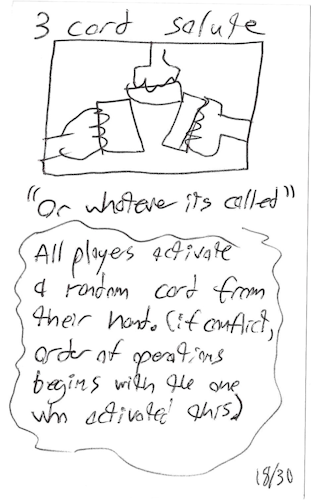 3 card salute
"Or whatever its called"
All players activate
a random card from
their hand. (if conflict,
order of operations
begins with the one
who activated this)
18/30